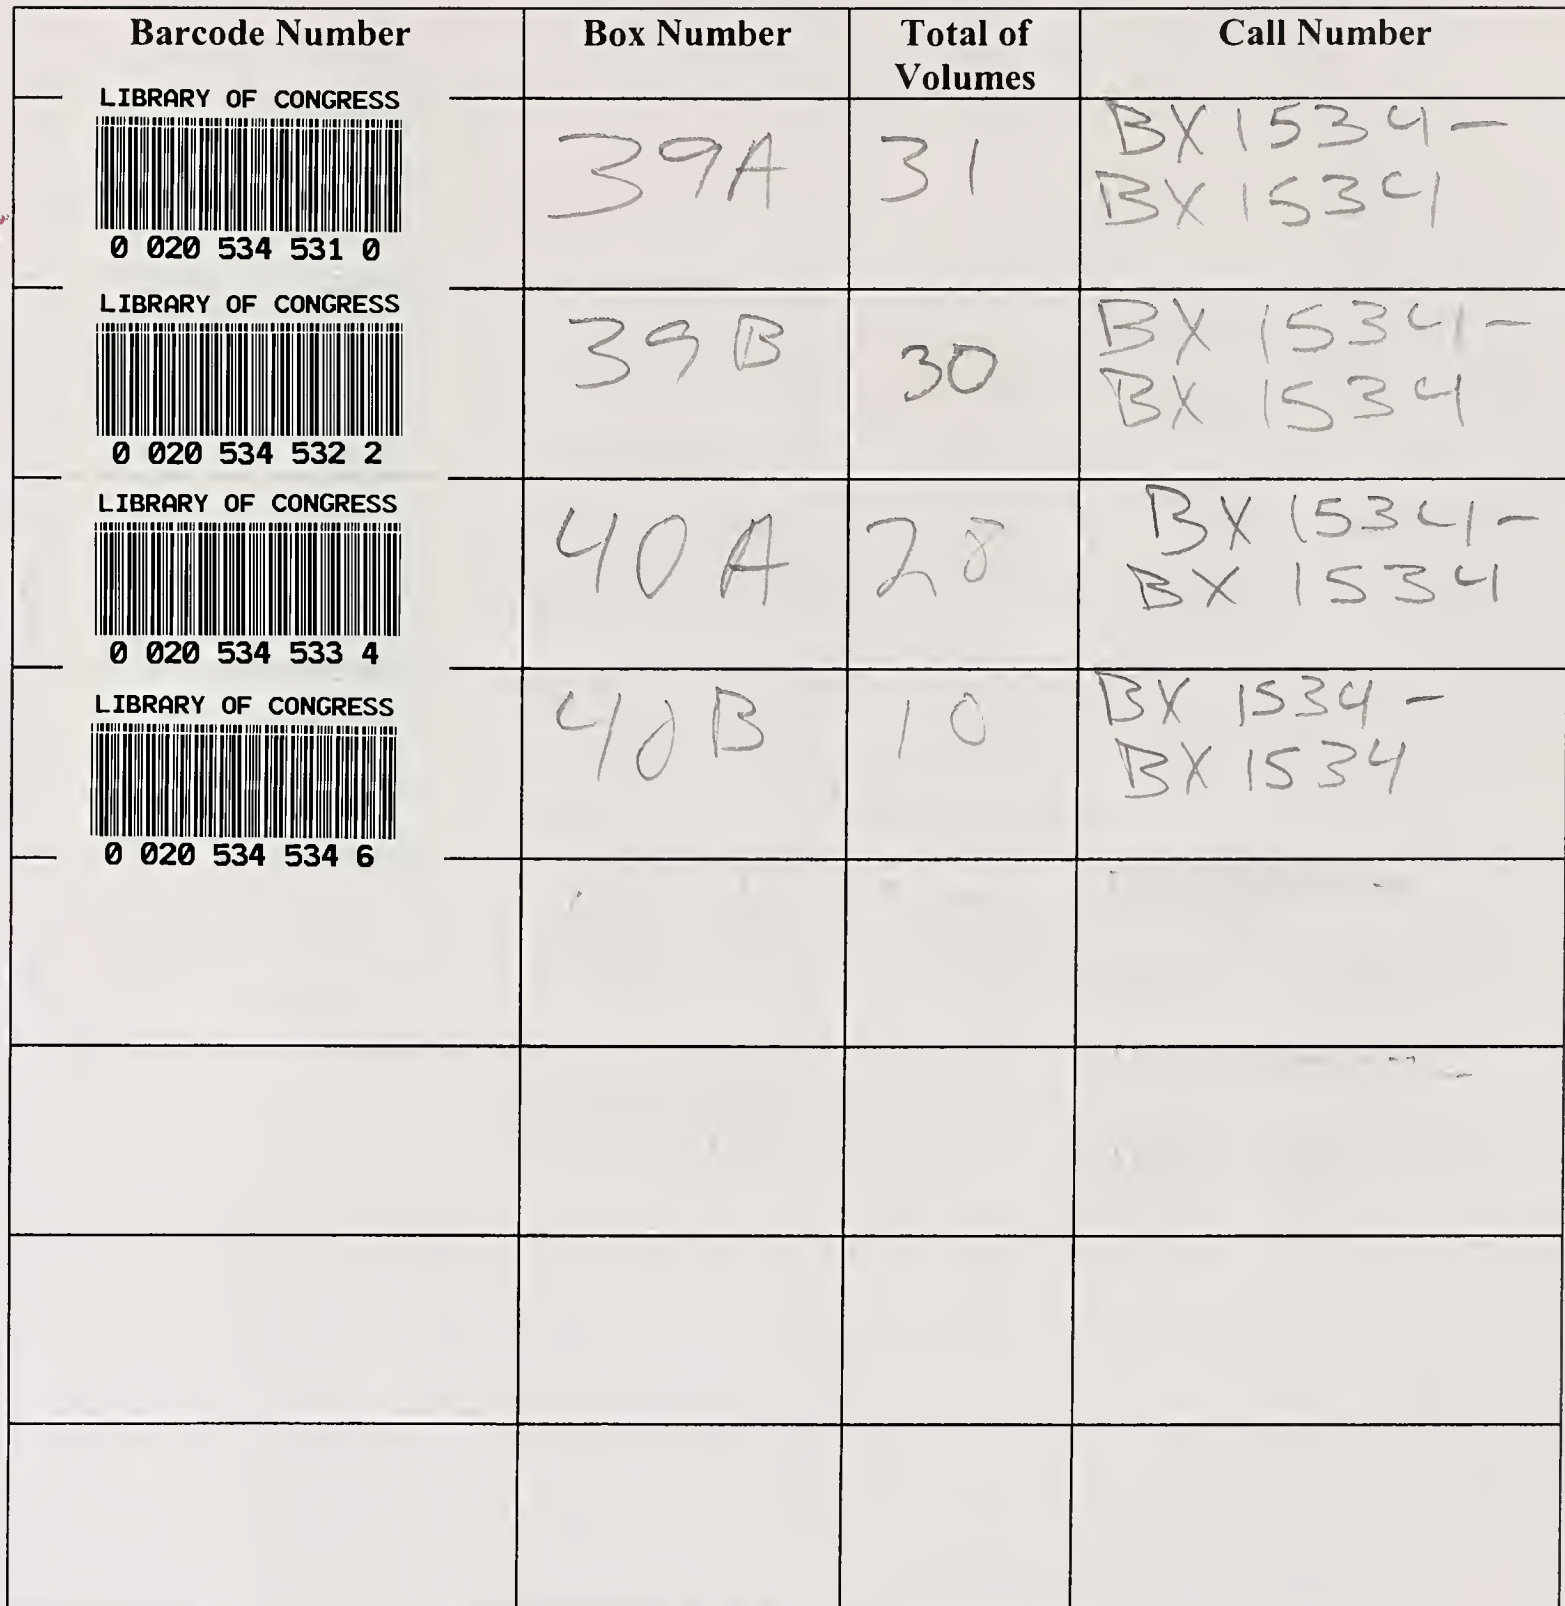 Barcode Number Box Number Total of Call Number
Volumes
LIBRARY OF CONGRESS
0 020 534 531 0
39A
31
BX 1534-
BX 1534
LIBRARY OF CONGRESS
0 020 534 532 2
39B
30
BX 1534-
BX 1534
LIBRARY OF CONGRESS
0 020 534 533 4
40A
28
BX 1534-
BX 1534
LIBRARY OF CONGRESS
0 020 534 534 6
40B
10
BX 1534-
BX 1534